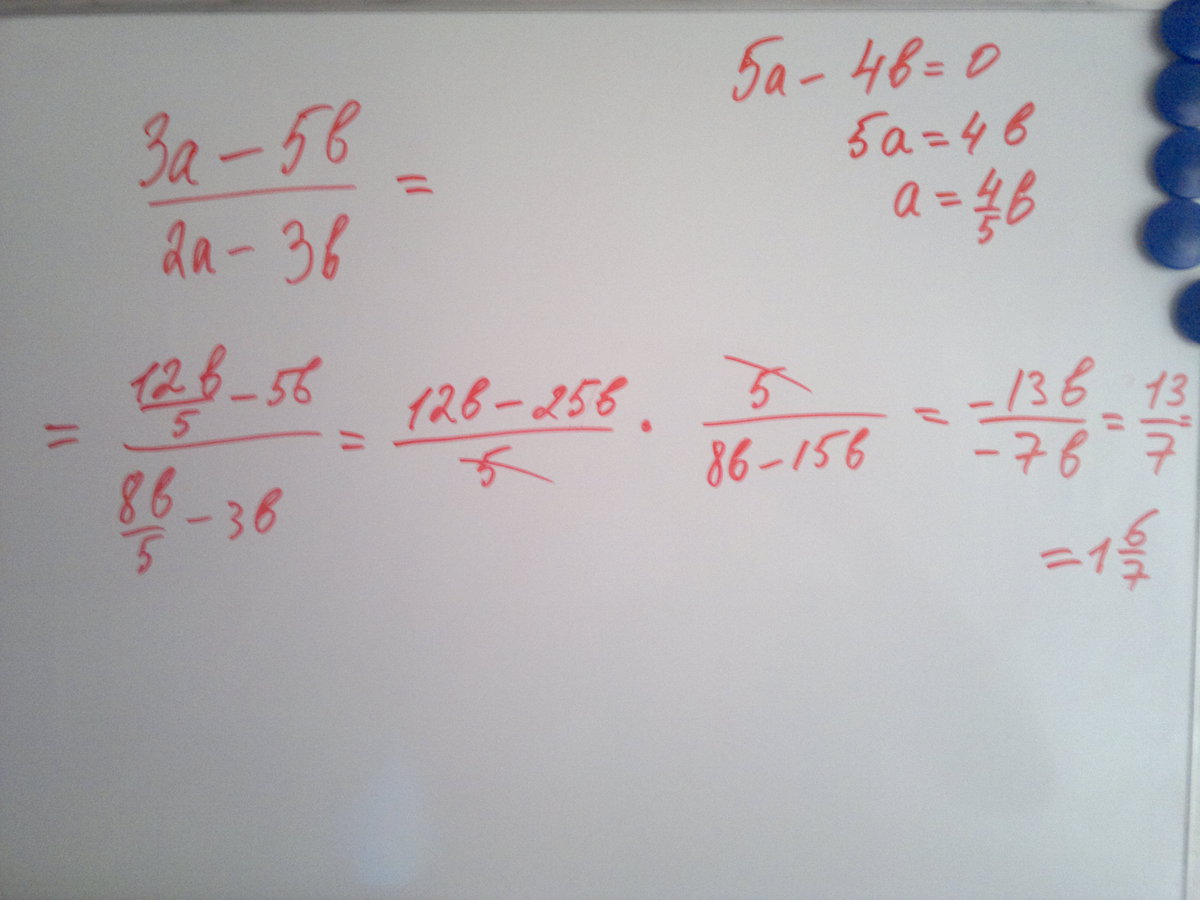 5а - 4в = 0
5а = 4в
а = 4/5 в
(3а - 5в)/(2а - 3в) =
= (12в/5 - 5в)/(8в/5 - 3в) = (12в - 25в)/5 · 5/(8в - 15в) = (-13в)/(-7в) = 13/7 =
= 1 6/7